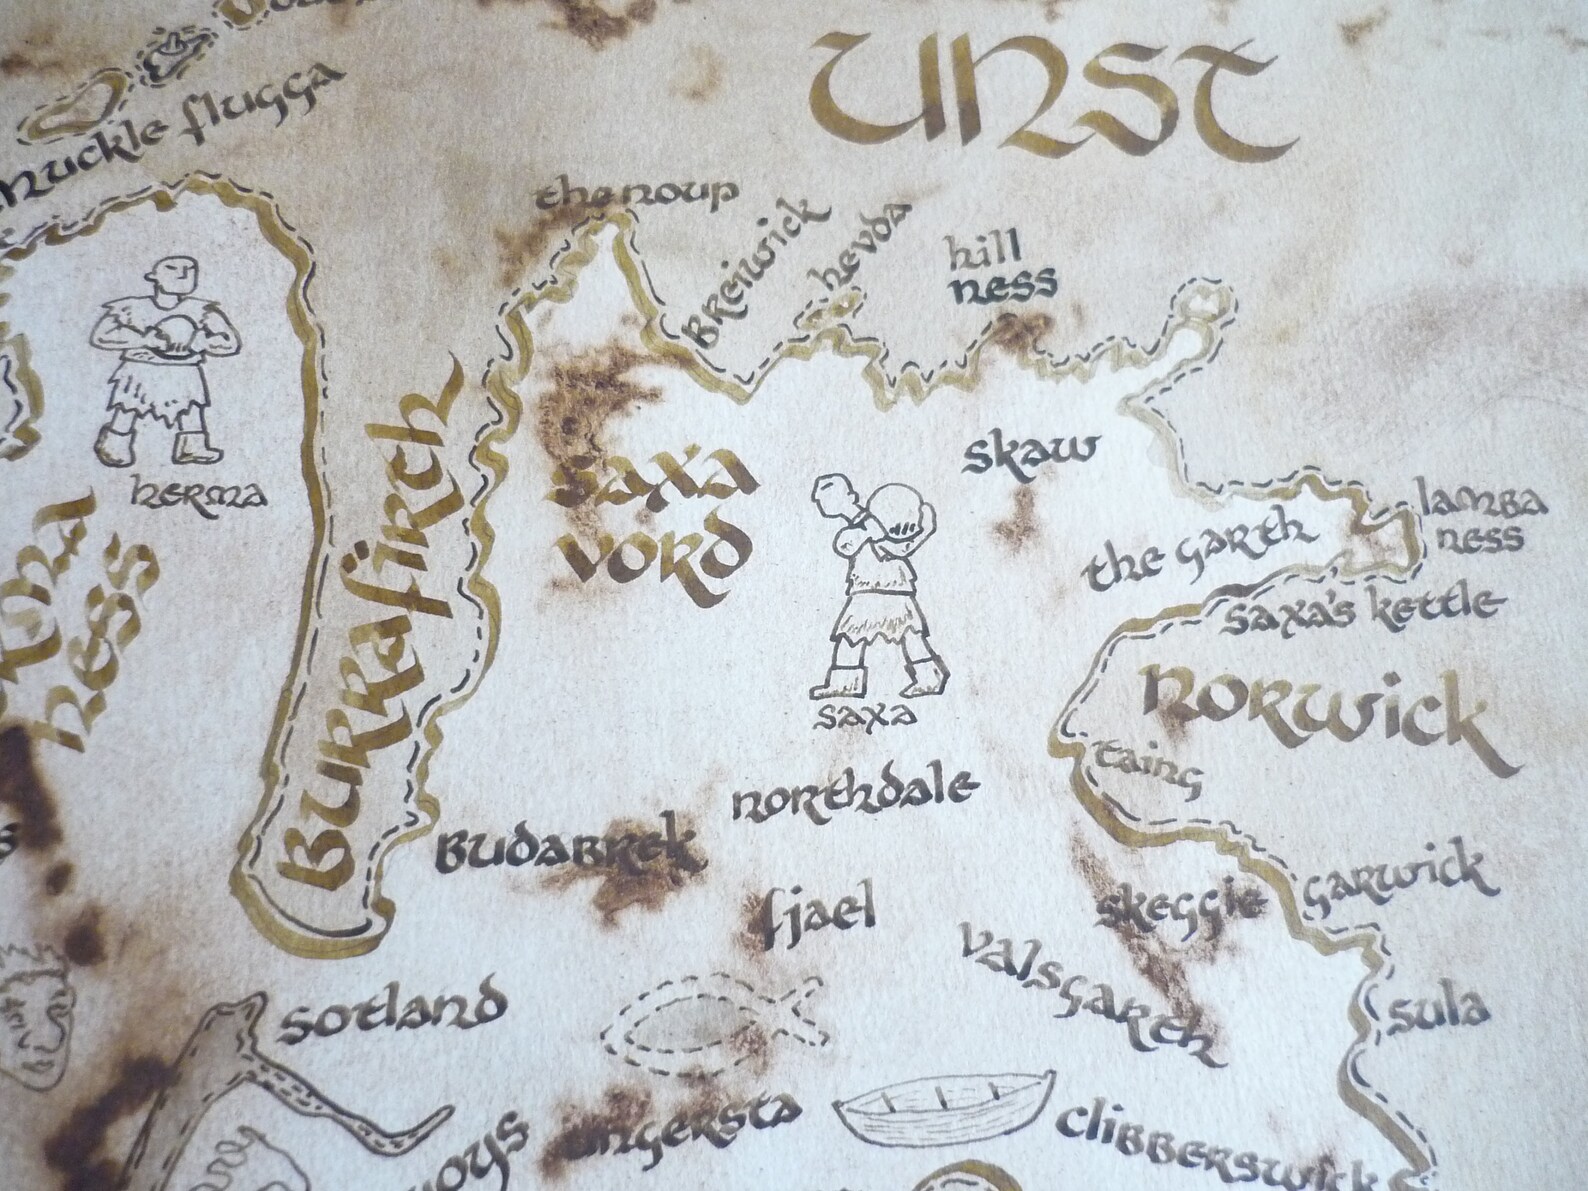 UNST
muckle flugga
the noup
Breiwick
hevda
hill
ness
herma
Burrafirth
saxa
vord
skaw
lamba
ness
the garth
saxa's kettle
saxa
norwick
taing
northdale
Budabrek
fjael
skeggie
garwick
valsgarth
sula
sotland
ungersta
clibberswick
ness